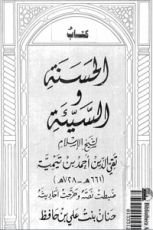 كتاب
الحسنة
و
السيئة
لشيخ الإسلام
تقي الدين أحمد بن تيمية
(٦٦١هـ - ٧٢٨هـ)
ضبطت نصه وخرجت أحاديثه
حنان بنت علي بن حافظ